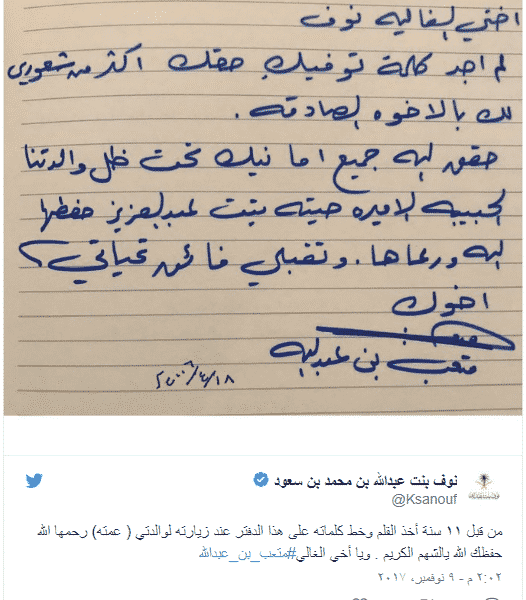 اختي الغاليه نوف
لم اجد كلمة توفيك حقك اكثر من شعوري
لك بالاخوه الصادقه.
حقق الله جميع امانيك تحت ظل والدتنا
الحبيبه الاميره حيته بنت عبدالعزيز حفظها
الله ورعاها. وتقبلي فائق تحياتي،
اخوك
متعب بن عبدالله
٢٠٠٦/٤/١٨
نوف بنت عبدالله بن محمد بن سعود
@Ksanouf
من قبل ١١ سنة أخذ القلم وخط كلماته على هذا الدفتر عند زيارته لوالدتي ( عمته) رحمها الله
حفظك الله يالشهم الكريم . ويا أخي الغالي#متعب_بن_عبدالله
٢:٠٢ م - ٩ نوفمبر، ٢٠١٧